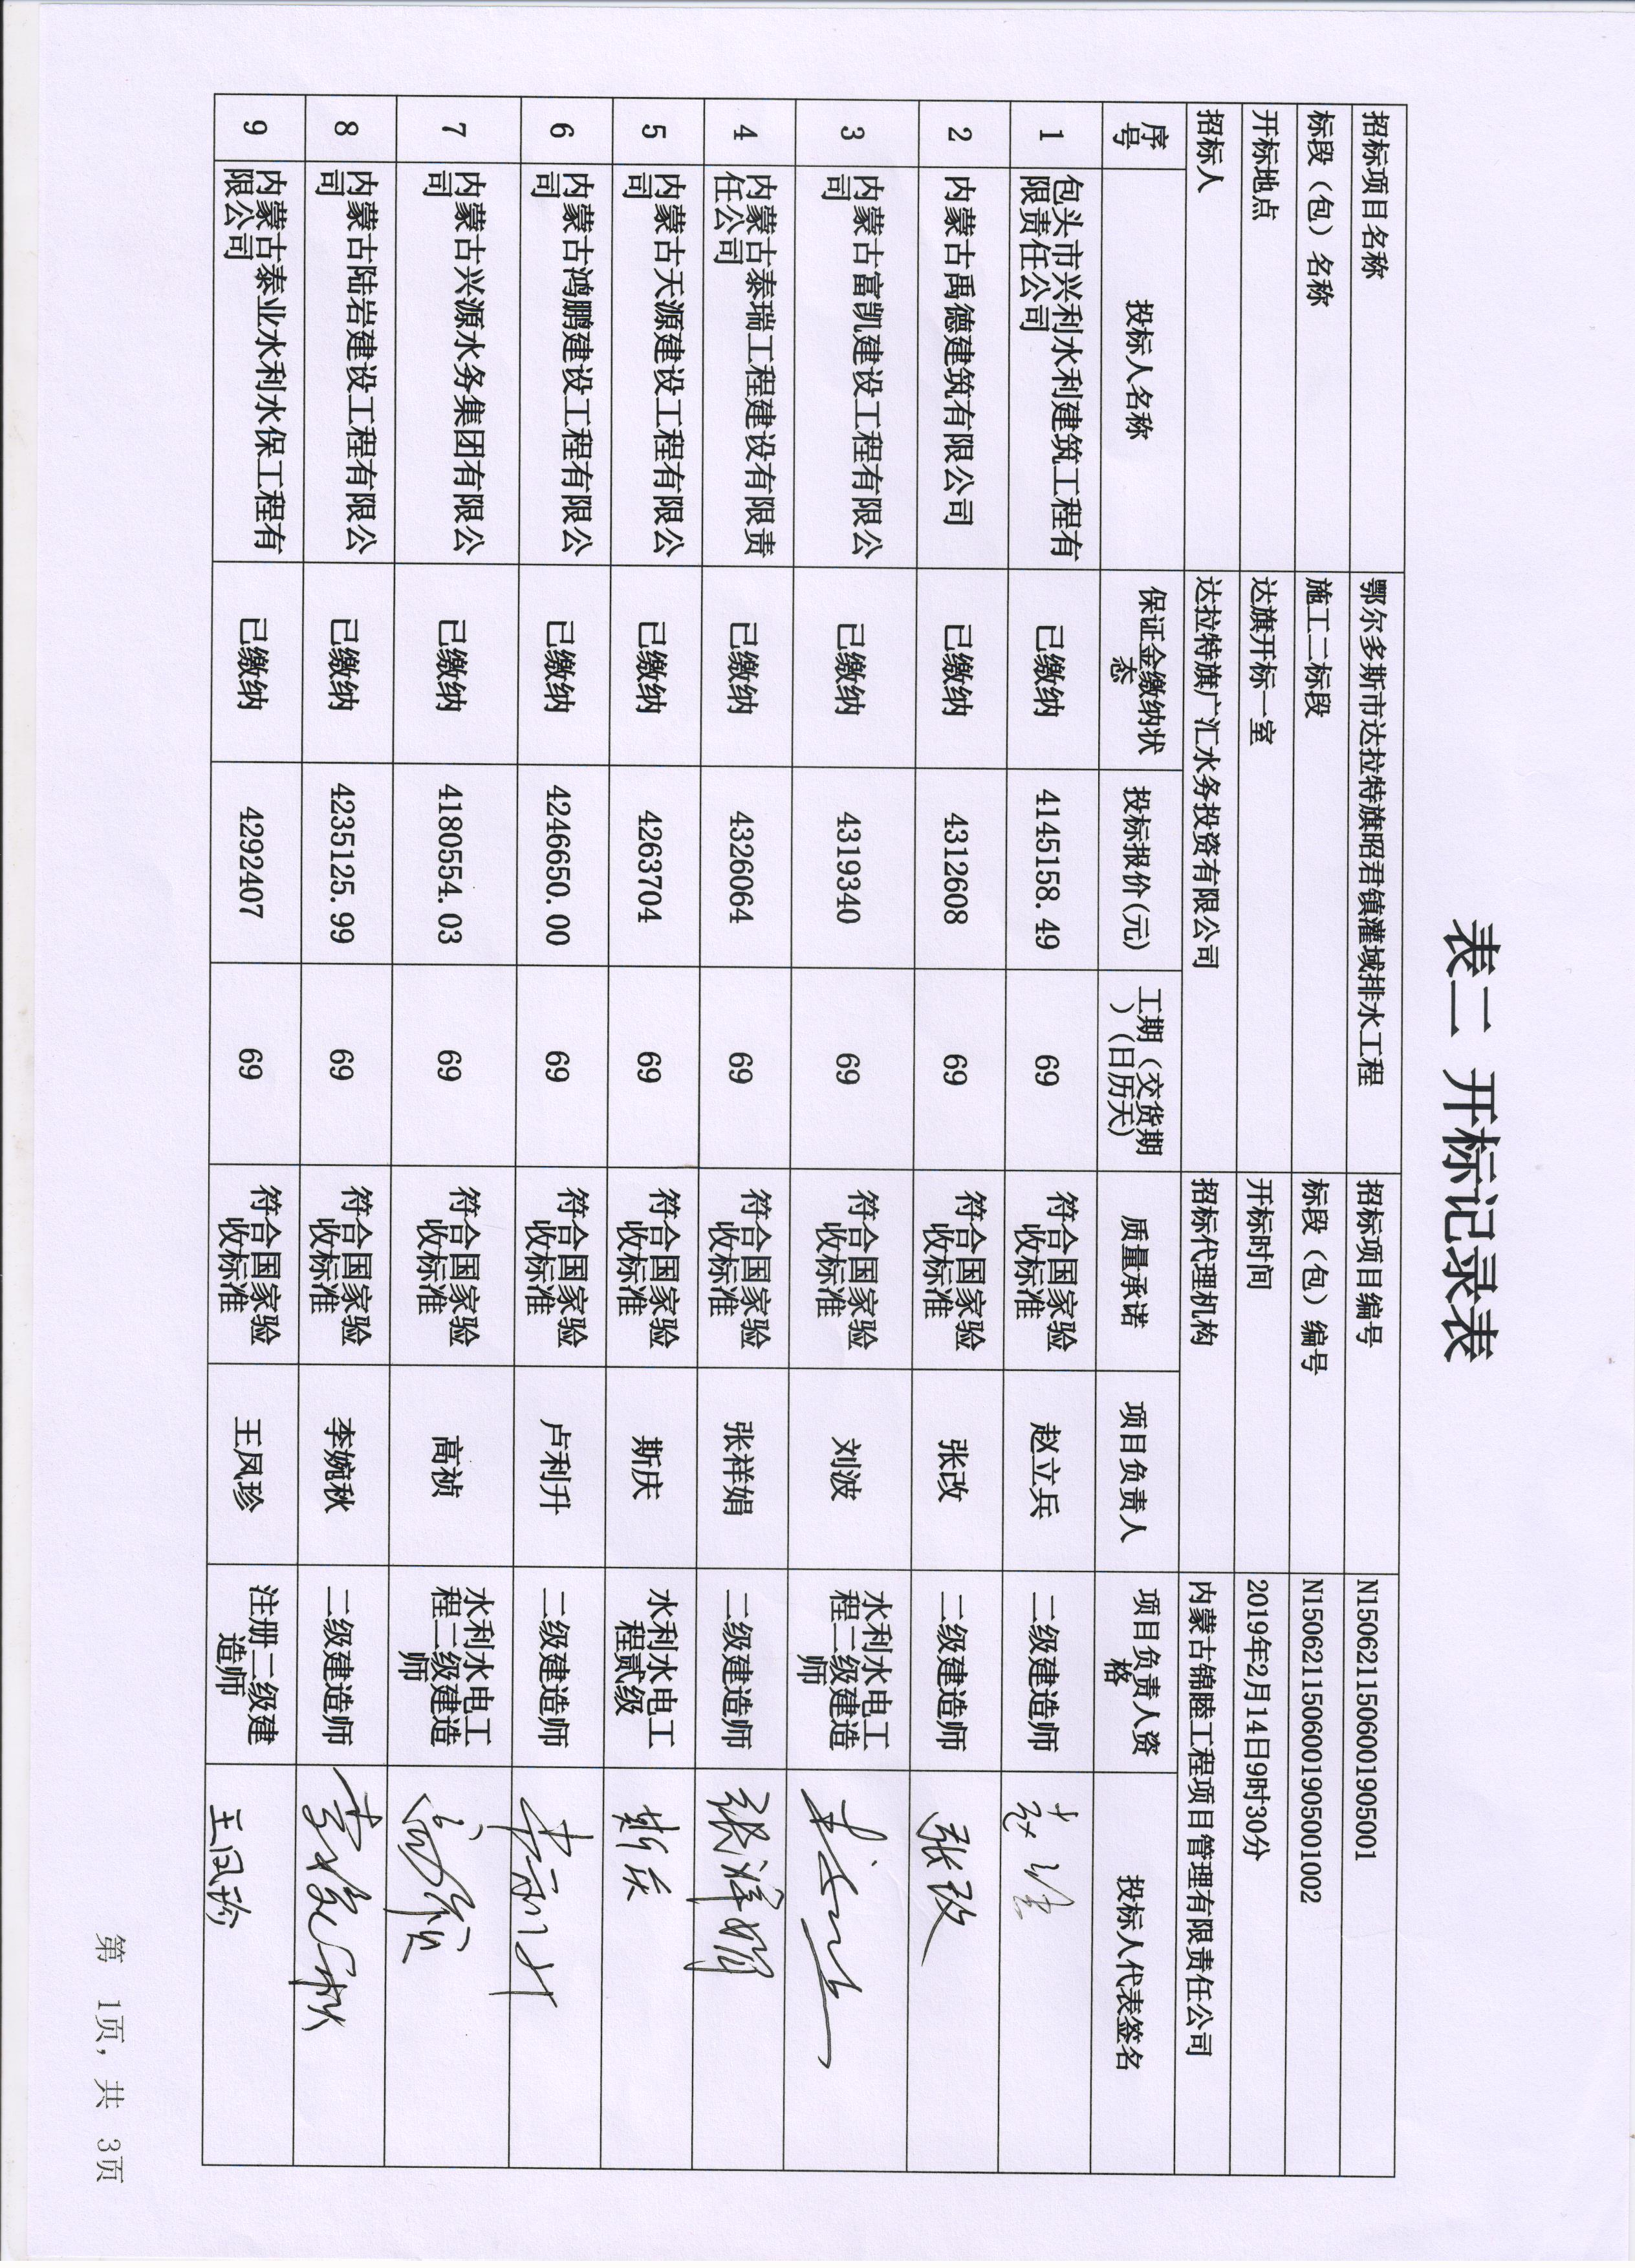 表二 开标记录表
招标项目名称 鄂尔多斯市达拉特旗昭君镇灌域排水工程 招标项目编号 N1506211506001905001
标段（包）名称 施工二标段 标段（包）编号 N1506211506001905001002
开标地点 达旗开标一室 开标时间 2019年2月14日9时30分
招标人 达拉特旗广汇水务投资有限公司 招标代理机构 内蒙古锦睦工程项目管理有限责任公司
序号 投标人名称 保证金缴纳状态 投标报价(元) 工期（交货期）（日历天） 质量承诺 项目负责人 项目负责人资格 投标人代表签名
1 包头市兴利水利建筑工程有限责任公司 已缴纳 4145158.49 69 符合国家验收标准 赵立兵 二级建造师
2 内蒙古禹德建筑有限公司 已缴纳 4312608 69 符合国家验收标准 张改 二级建造师 张改
3 内蒙古富凯建设工程有限公司 已缴纳 4319340 69 符合国家验收标准 刘波 水利水电工程二级建造师
4 内蒙古泰瑞工程建设有限责任公司 已缴纳 4326064 69 符合国家验收标准 张祥娟 二级建造师 张祥娟
5 内蒙古天源建设工程有限公司 已缴纳 4263704 69 符合国家验收标准 斯庆 水利水电工程贰级 斯庆
6 内蒙古鸿鹏建设工程有限公司 已缴纳 4246650.00 69 符合国家验收标准 卢利升 二级建造师
7 内蒙古兴源水务集团有限公司 已缴纳 4180554.03 69 符合国家验收标准 高祯 水利水电工程二级建造师
8 内蒙古陆岩建设工程有限公司 已缴纳 4235125.99 69 符合国家验收标准 李婉秋 二级建造师
9 内蒙古泰业水利水保工程有限公司 已缴纳 4292407 69 符合国家验收标准 王凤珍 注册二级建造师 王凤珍
第 1页, 共 3页